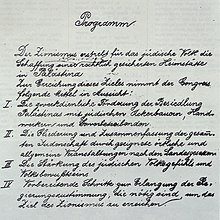 Programm
Der Zionismus erstrebt für das jüdische Volk die
Schaffung einer rechtlich gesicherten Heimstätte
in Palästina.
Zur Erreichung dieses Zieles nimmt der Congress
folgende Mittel in Aussicht:
I. Die zweckdienliche Förderung der Besiedlung
Palästinas mit jüdischen Ackerbauern, Hand-
werkern und Gewerbetreibenden.
II. Die Gliederung und Zusammenfassung der gesam-
ten Judenschaft durch geeignete örtliche und
allgemeine Veranstaltungen nach den Landesgesetzen.
III. Die Stärkung des jüdischen Volksgefühls und
Volksbewusstseins.
IV. Vorbereitende Schritte zur Erlangung der Re-
gierungszustimmung, die nötig sind, um das
Ziel des Zionismus zu erreichen.